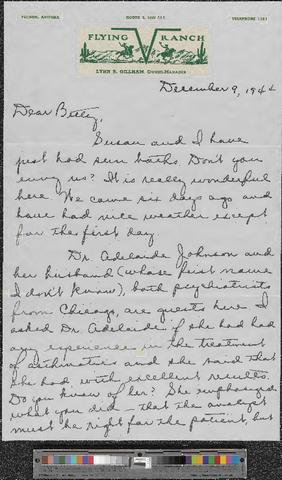 TUCSON, ARIZONA
TELEPHONE
FLYING V RANCH
LYNN B. GILLHAM, OWNER-MANAGER
December 9, 1944
Dear Betty,
Susan and I have
just had sun baths. Don't you
envy us? It is really wonderful
here. We came six days ago and
have had nice weather except
for the first day.
Dr. Adelaide Johnson and
her husband (whose first name
I don't know), both psychiatrists
from Chicago, are guests here. I
asked Dr. Adelaide if she had had
any experience in the treatment
of asthmatics and she said that
she had, with excellent results.
Do you know of her? She emphasized
what you did — that the analyst
must be right for the patient, but